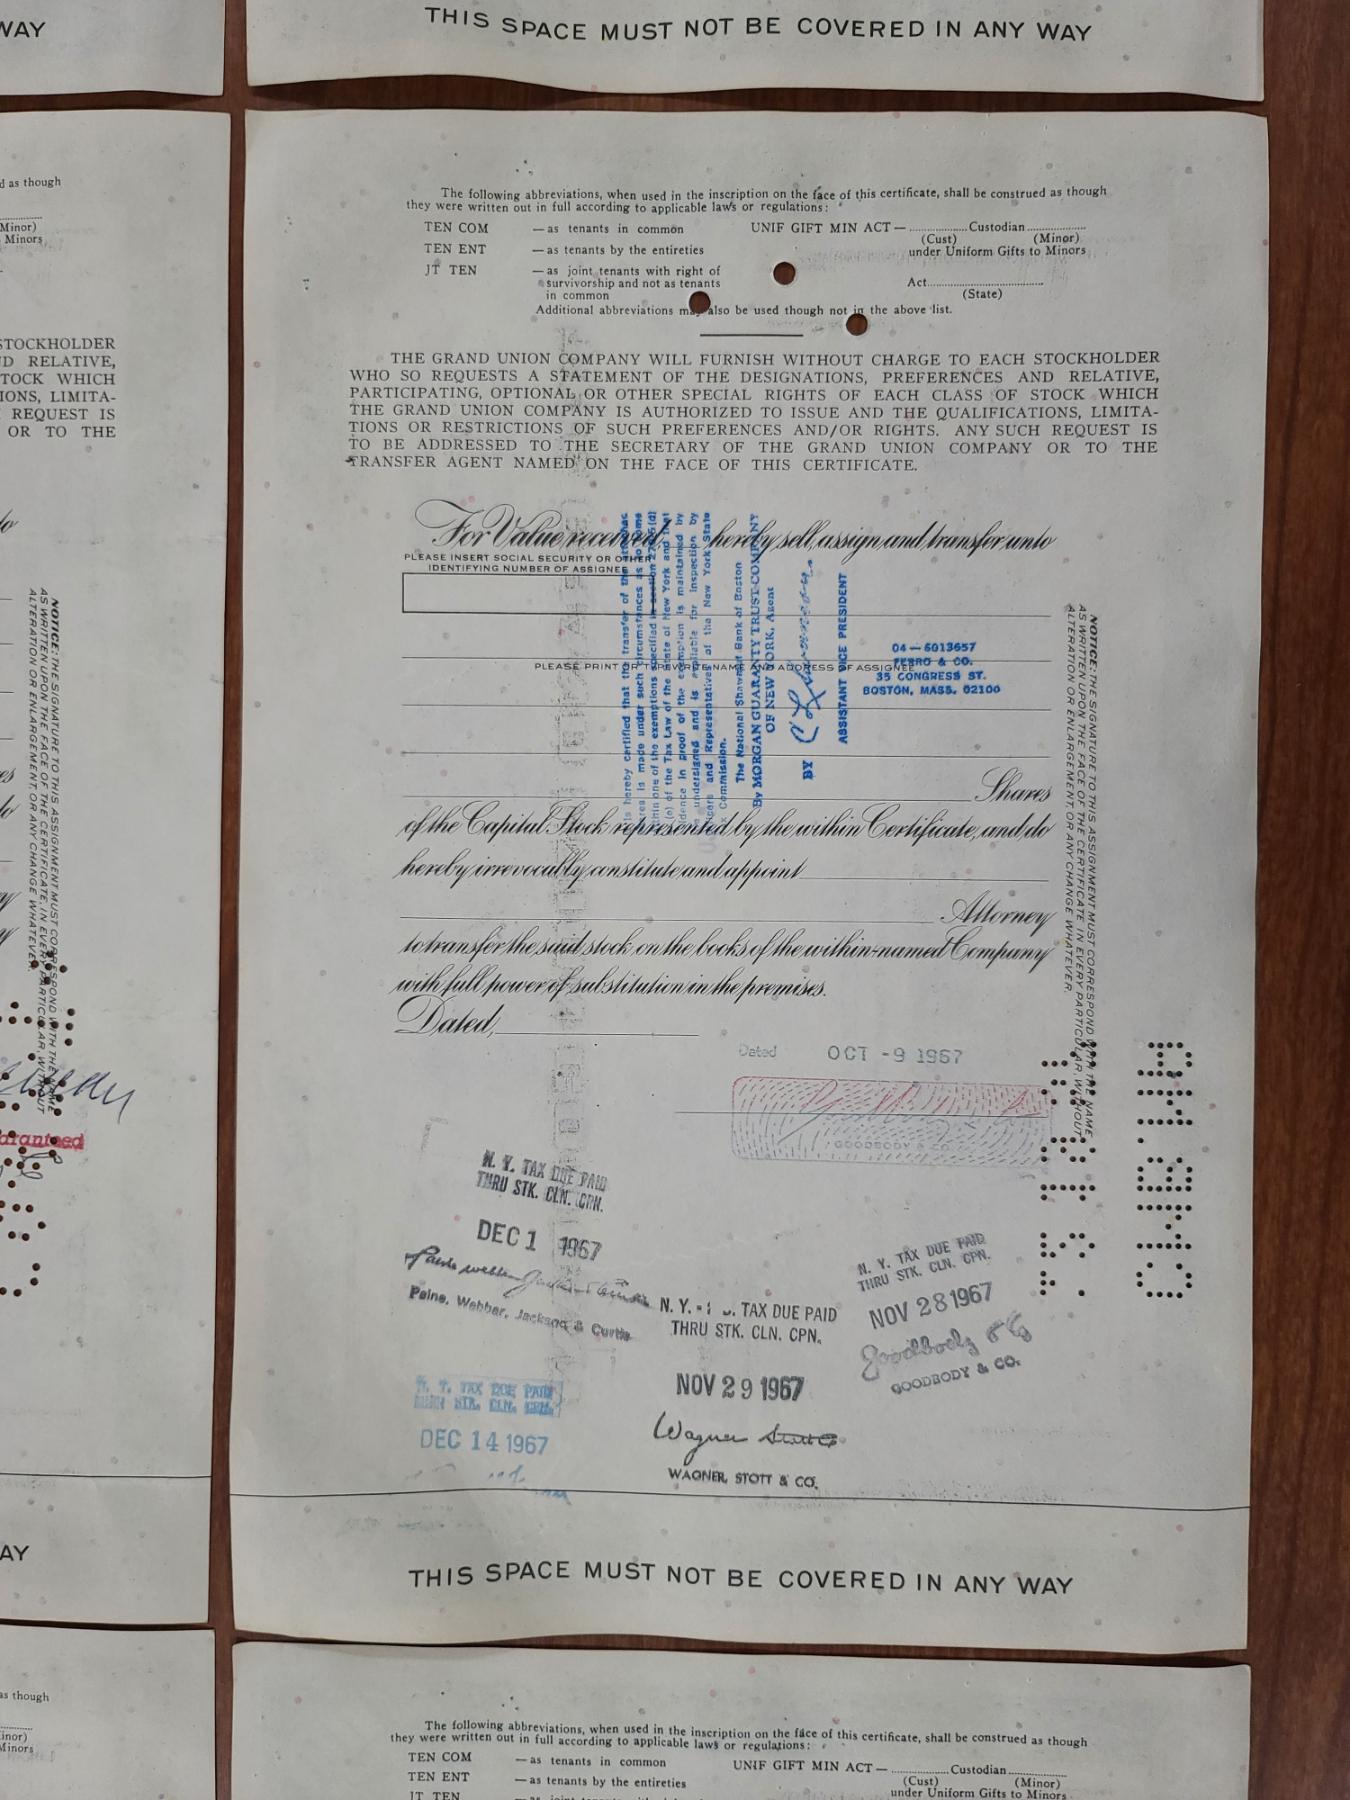 WAY
THIS SPACE MUST NOT BE COVERED IN ANY WAY
d as though
Minor)
Minors
STOCKHOLDER
ND RELATIVE,
TOCK WHICH
IONS, LIMITA-
REQUEST IS
OR TO THE
NOTICE: THE SIGNATURE TO THIS ASSIGNMENT MUST CORRESPOND WITH THE NAME
AS WRITTEN UPON THE FACE OF THE CERTIFICATE, IN EVERY PARTICULAR, WITHOUT
ALTERATION OR ENLARGEMENT, OR ANY CHANGE WHATEVER.
aranteed
AY
as though
inor)
Minors
The following abbreviations, when used in the inscription on the face of this certificate, shall be construed as though
they were written out in full according to applicable laws or regulations:
TEN COM — as tenants in common UNIF GIFT MIN ACT — Custodian
(Cust) (Minor)
TEN ENT — as tenants by the entireties under Uniform Gifts to Minors
JT TEN — as joint tenants with right of
survivorship and not as tenants Act
in common (State)
Additional abbreviations may also be used though not in the above list.
THE GRAND UNION COMPANY WILL FURNISH WITHOUT CHARGE TO EACH STOCKHOLDER
WHO SO REQUESTS A STATEMENT OF THE DESIGNATIONS, PREFERENCES AND RELATIVE,
PARTICIPATING, OPTIONAL OR OTHER SPECIAL RIGHTS OF EACH CLASS OF STOCK WHICH
THE GRAND UNION COMPANY IS AUTHORIZED TO ISSUE AND THE QUALIFICATIONS, LIMITA-
TIONS OR RESTRICTIONS OF SUCH PREFERENCES AND/OR RIGHTS. ANY SUCH REQUEST IS
TO BE ADDRESSED TO THE SECRETARY OF THE GRAND UNION COMPANY OR TO THE
TRANSFER AGENT NAMED ON THE FACE OF THIS CERTIFICATE.
For Value received, hereby sell, assign and transfer unto
PLEASE INSERT SOCIAL SECURITY OR OTHER
IDENTIFYING NUMBER OF ASSIGNEE
hereby certified that the transfer of the
is made under such circumstances as to come
within one of the exemptions specified in section
of the Tax Law of the State of New York and that
evidence in proof of the exemption is maintained by
undersigned and is available for inspection by
and Representatives of the New York State
Commission.
The National Shawmut Bank of Boston
By MORGAN GUARANTY TRUST COMPANY
OF NEW YORK, Agent
BY
ASSISTANT VICE PRESIDENT
04—6013657
FERRO & CO.
35 CONGRESS ST.
BOSTON, MASS. 02100
PLEASE PRINT OR TYPEWRITE NAME AND ADDRESS OF ASSIGNEE
Shares
of the Capital Stock represented by the within Certificate, and do
hereby irrevocably constitute and appoint
Attorney
to transfer the said stock on the books of the within-named Company
with full power of substitution in the premises.
Dated,
NOTICE: THE SIGNATURE TO THIS ASSIGNMENT MUST CORRESPOND WITH THE NAME
AS WRITTEN UPON THE FACE OF THE CERTIFICATE, IN EVERY PARTICULAR, WITHOUT
ALTERATION OR ENLARGEMENT, OR ANY CHANGE WHATEVER.
Dated OCT -9 1967
GOODBODY &
N. Y. TAX DUE PAID
THRU STK. CLN. CPN.
DEC 1 1967
Paine, Webber, Jackson & Curtis
Paine, Webber, Jackson & Curtis
N. Y. TAX DUE PAID
THRU STK. CLN. CPN.
NOV 28 1967
Goodbody & Co
GOODBODY & CO.
TAX DUE PAID
THRU STK. CLN. CPN.
NOV 29 1967
Wagner Stott & Co
WAGNER, STOTT & CO.
N. Y. TAX DUE PAID
THRU STK. CLN. CPN.
DEC 14 1967
THIS SPACE MUST NOT BE COVERED IN ANY WAY
The following abbreviations, when used in the inscription on the face of this certificate, shall be construed as though
they were written out in full according to applicable laws or regulations:
TEN COM — as tenants in common UNIF GIFT MIN ACT — Custodian
(Cust) (Minor)
TEN ENT — as tenants by the entireties under Uniform Gifts to Minors
JT TEN